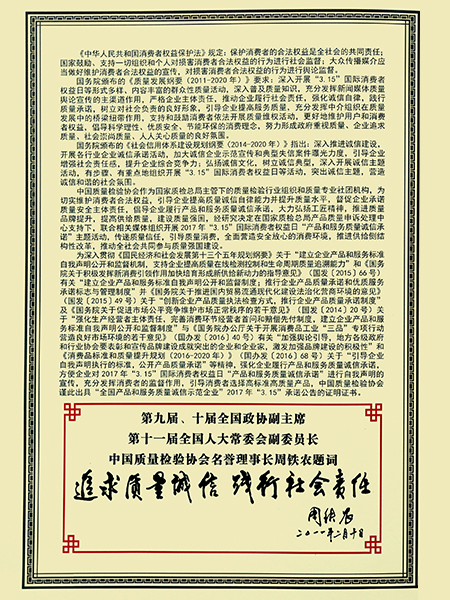 《中华人民共和国消费者权益保护法》规定：保护消费者的合法权益是全社会的共同责任；
国家鼓励、支持一切组织和个人对损害消费者合法权益的行为进行社会监督；大众传播媒介应
当做好维护消费者合法权益的宣传，对损害消费者合法权益的行为进行舆论监督。
国务院颁布的《质量发展纲要（2011-2020年）》要求：深入开展“3.15”国际消费者权
益日等形式多样、内容丰富的群众性质量活动，深入普及质量知识，充分发挥新闻媒体质量
舆论宣传的主渠道作用，严格企业主体责任，推动企业履行社会责任，强化诚信自律，践行
质量承诺，树立对社会负责的良好形象，引导企业提高服务质量，充分发挥中介组织在质量
发展中的桥梁纽带作用，支持和鼓励消费者依法开展质量维权活动，更好地维护用户和消费
者权益，倡导科学理性、优质安全、节能环保的消费理念，努力形成政府重视质量、企业追求
质量、社会崇尚质量、人人关心质量的良好氛围。
国务院颁布的《社会信用体系建设规划纲要（2014-2020年）》指出：深入推进诚信建设，
开展各行业企业诚信承诺活动，加大诚信企业示范宣传和典型失信案件曝光力度，引导企业
增强社会责任感，提升企业综合竞争力；弘扬诚信文化，树立诚信典型，深入开展诚信主题
活动，有步骤、有重点地组织开展“3.15”国际消费者权益日等活动，突出诚信主题，营造
诚信和谐的社会氛围。
中国质量检验协会作为国家质检总局主管下的质量检验行业组织和质量专业社团机构，为
切实维护消费者合法权益，引导企业提高质量诚信自律能力并提升质量水平，督促企业承诺
质量安全主体责任，倡导企业履行产品和服务质量诚信承诺，大力弘扬工匠精神，推进质量
品牌提升，提高供给质量，建设质量强国，经研究决定在国家质检总局产品质量申诉处理中
心支持下，联合相关媒体组织开展2017年“3.15”国际消费者权益日“产品和服务质量诚信承
诺”主题活动，传递质量信任，引导质量消费，全面营造安全放心的消费环境，推进供给侧结
构性改革，推动全社会共同参与质量强国建设。
为深入贯彻《国民经济和社会发展第十三个五年规划纲要》关于“建立企业产品和服务标准
自我声明公开和监督机制，支持企业提高质量在线检测控制和生命周期质量追溯能力”和《国务
院关于积极发挥新消费引领作用加快培育形成新供给新动力的指导意见》（国发〔2015〕66号）
有关“建立企业产品和服务标准自我声明公开和监督制度，推行企业产品质量承诺和优质服务
承诺标志与管理制度”并《国务院关于推进国内贸易流通现代化建设法治化营商环境的意见》
（国发〔2015〕49号）关于“创新企业产品质量执法检查方式，推行企业产品质量承诺制度”
及《国务院关于促进市场公平竞争维护市场正常秩序的若干意见》（国发〔2014〕20号）关
于“强化生产经营者主体责任，完善消费环节经营者首问和赔偿先付制度，建立企业产品和服
务标准自我声明公开和监督制度”与《国务院办公厅关于开展消费品工业“三品”专项行动
营造良好市场环境的若干意见》（国办发〔2016〕40号）有关“加强舆论引导，地方各级政府
和行业协会要表彰和宣传品牌建设成就突出的企业和企业家，激发加强品牌建设的积极性”和
《消费品标准和质量提升规划（2016-2020年）》（国办发〔2016〕68号）关于“引导企业
自我声明执行的标准，公开产品质量承诺”等精神，强化企业履行产品和服务质量诚信承诺，
方便企业对2017年“3.15”国际消费者权益日“产品和服务质量诚信承诺”进行自我声明的
宣传，充分发挥消费者的监督作用，引导消费者选择高标准高质量产品，中国质量检验协会
谨此出具“全国产品和服务质量诚信示范企业”2017年“3.15”承诺公告的证明证书。
第九届、十届全国政协副主席
第十一届全国人大常委会副委员长
中国质量检验协会名誉理事长周铁农题词
追求质量诚信 践行社会责任
周铁农
二〇一一年二月十日